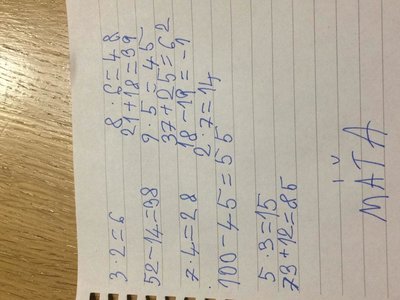 3·2=6 8·6=48
21+18=39
52-14=38 9·5=45
37+25=62
7·4=28 18-19=-1
2·7=14
100-45=55
5·3=15
73+12=85
MÁŤA